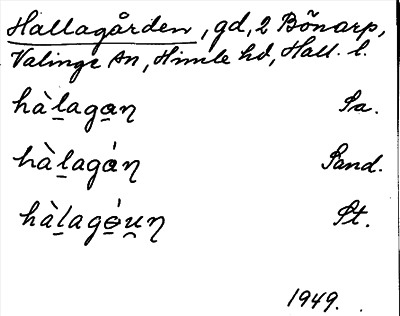 Hallagården, gd, 2 Bönarp,
Valinge sn, Himle hd, Hall. l.
hàl̲aga̲ɳ Sa.
hàl̲agȧɳ Sand.
hàl̲agó̲u̯ɳ St.
1949.